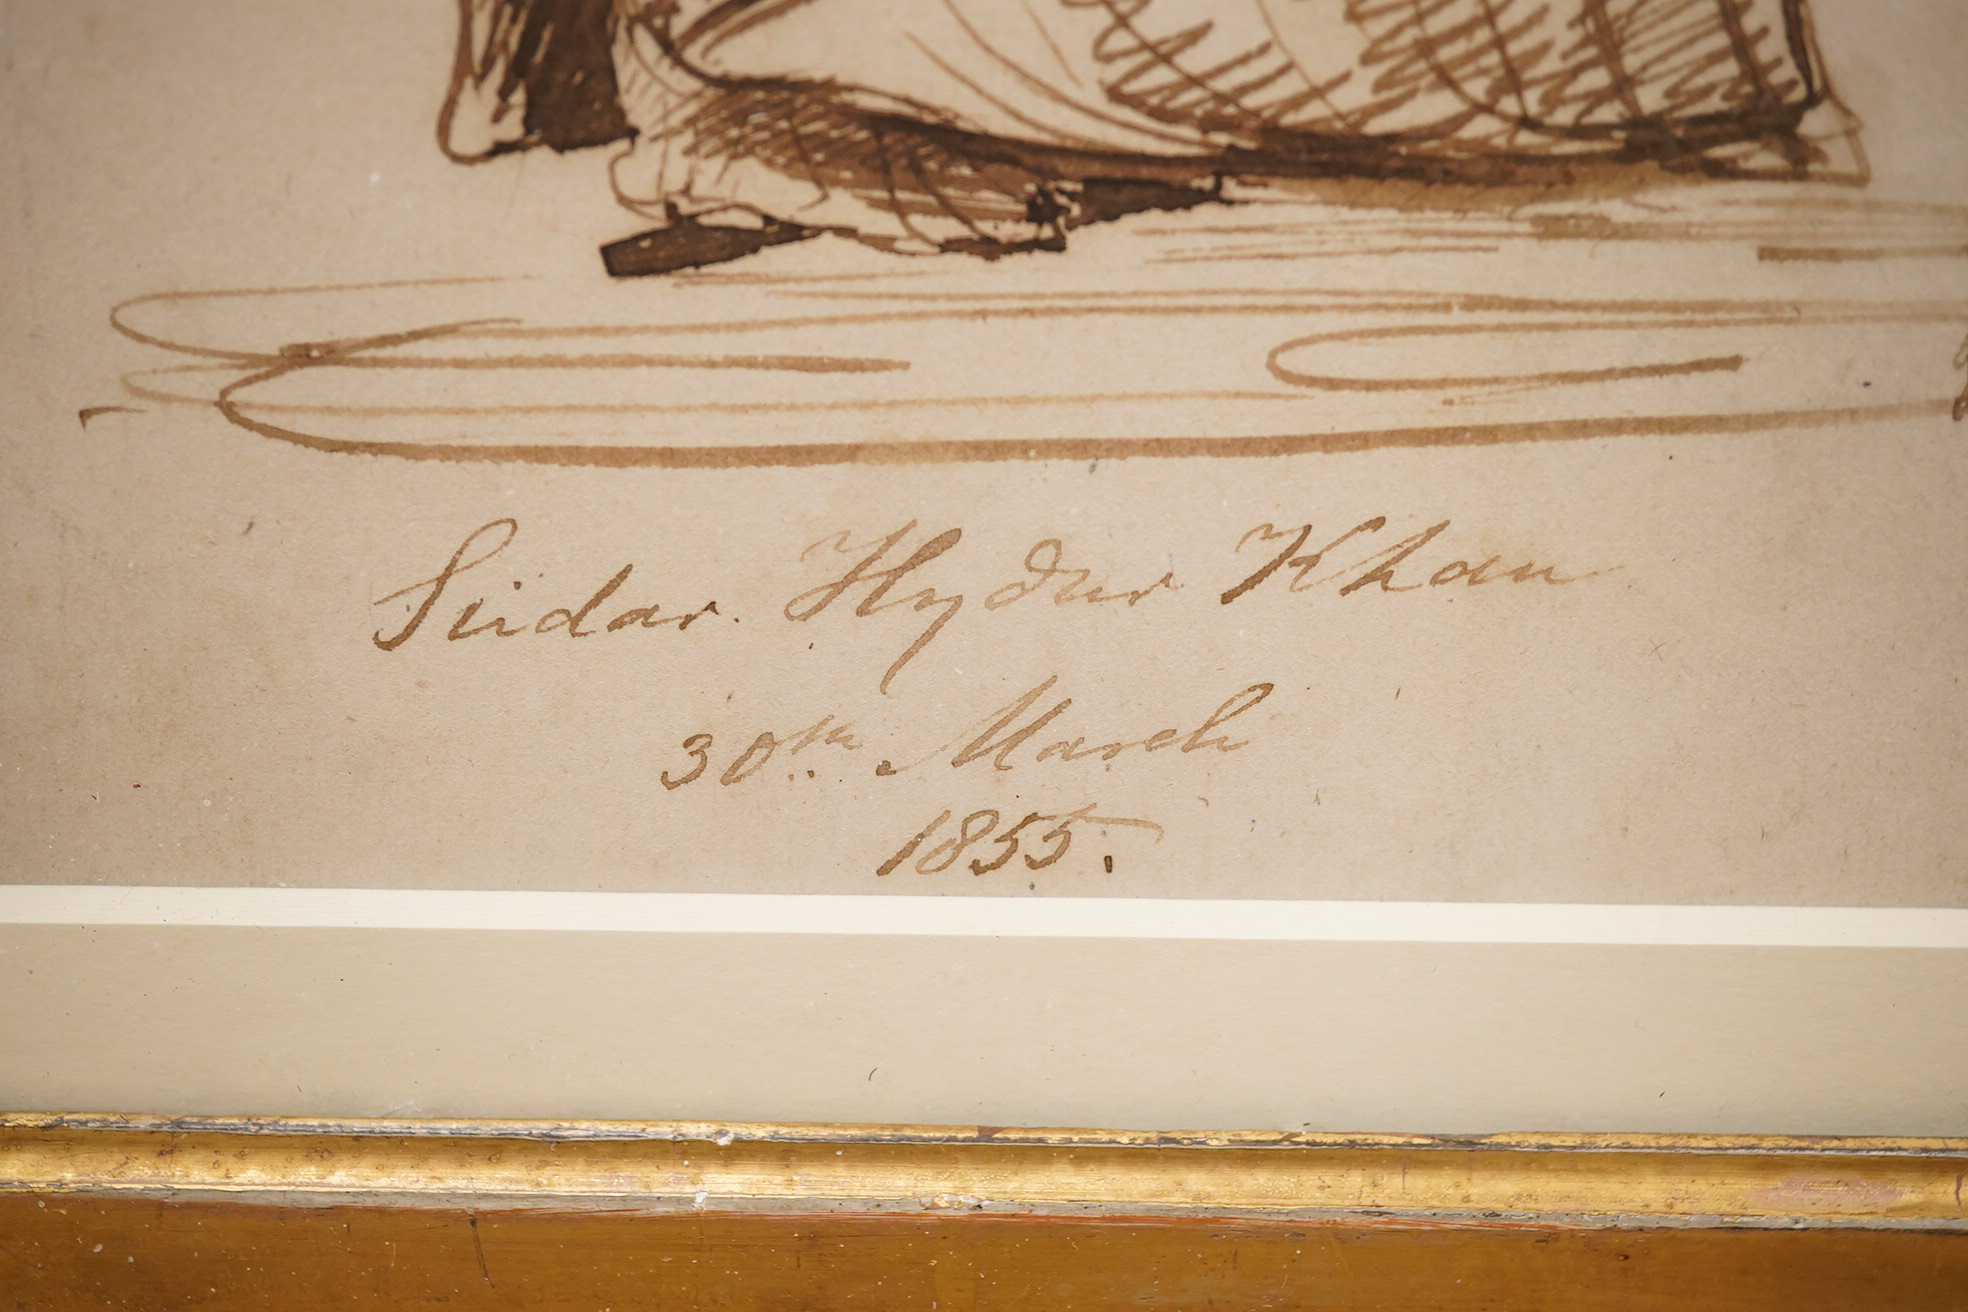 Sirdar. Hydur Khan
30th. March
1855.